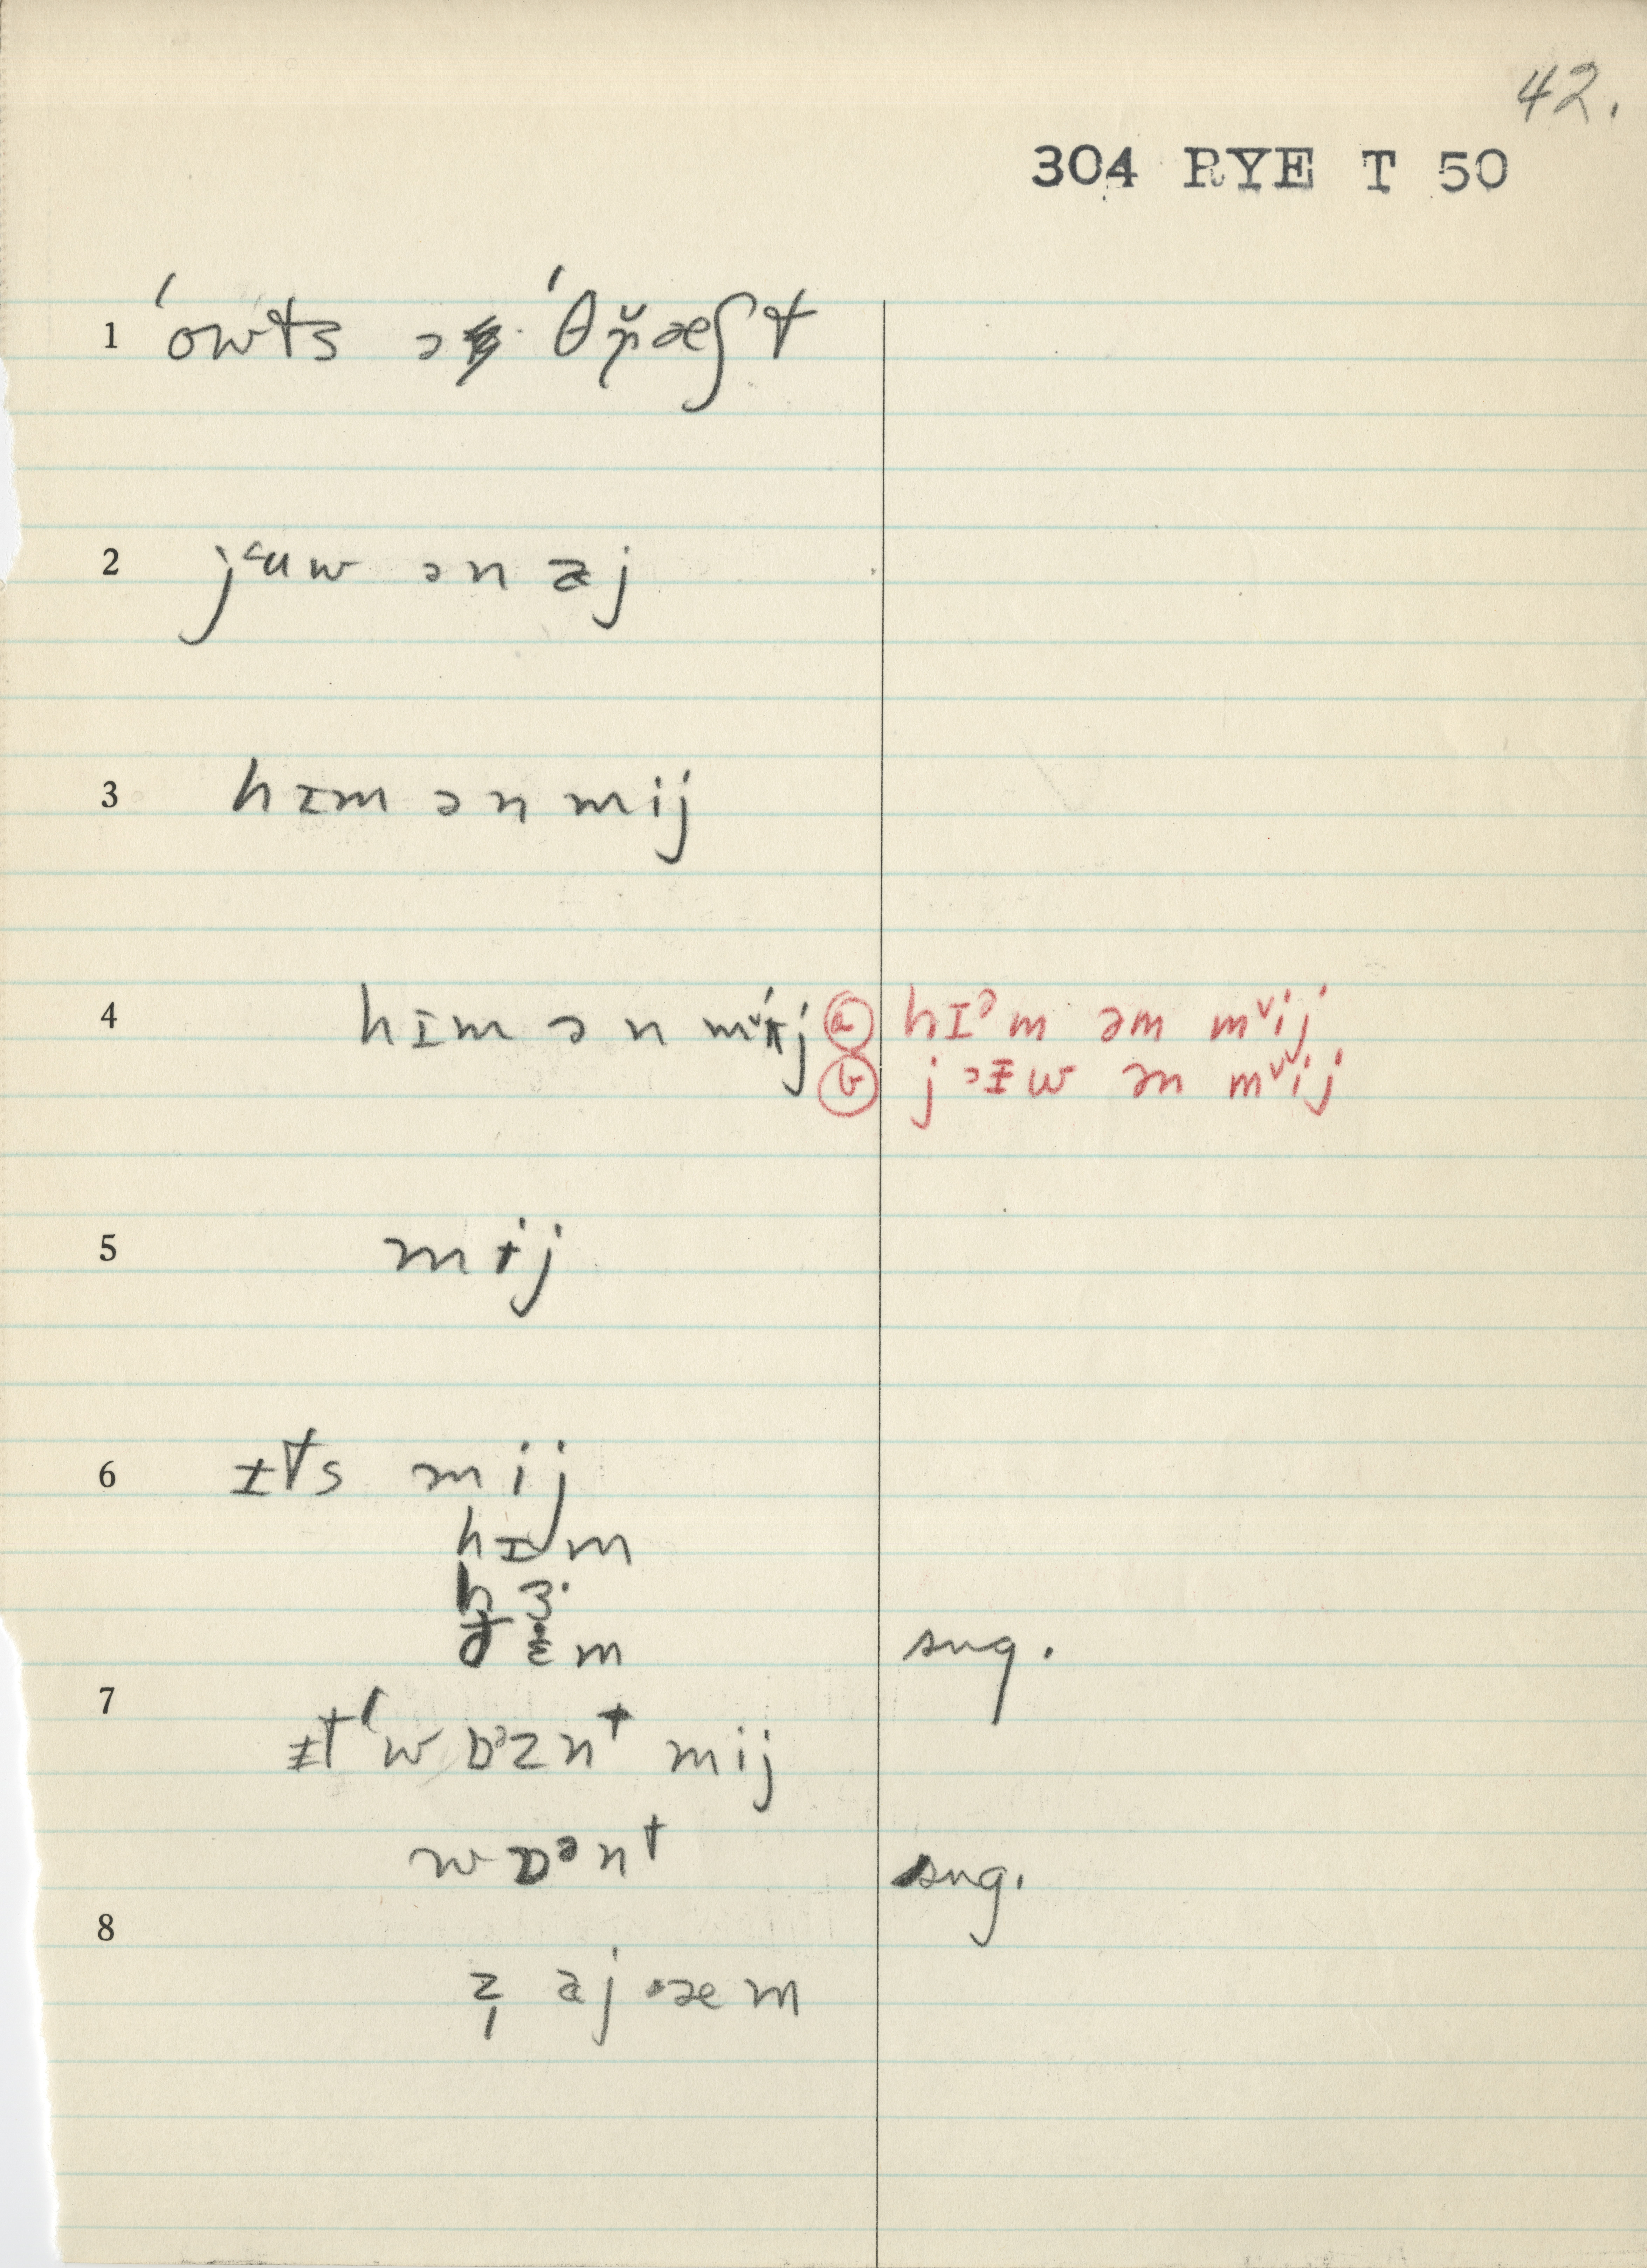 42.
304 RYE T 50
1 ˈowts ə ˈθr̆æʃt
2 jᵋuw ən aj
3 hɪm ən mij
4 hɪm ən mᵛij ⓐ hɪᵊm əm mᵛij
ⓑ jɔɪw ən mᵛij
5 mɨj
6 ɪts mij
hɪm
hɜ·
ðɛm sug.
7 ɪtˈwɒᵊznᵗ mij
wɒᵊnᵗ sug.
8
z̩ aj æm